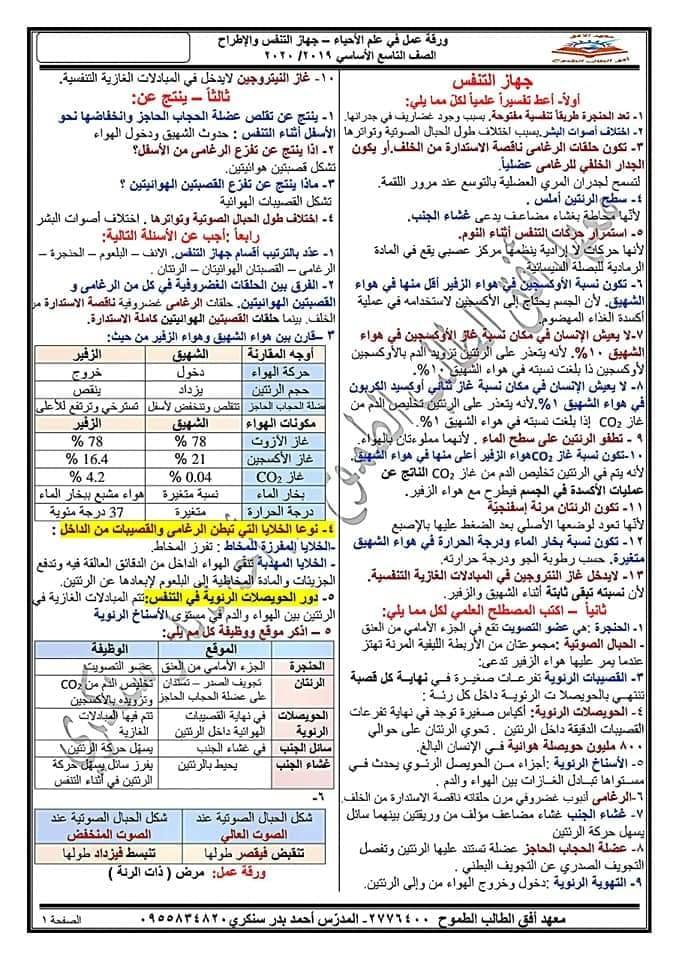 ورقة عمل في علم الأحياء – جهاز التنفس والإطراح
الصف التاسع الأساسي ٢٠١٩/ ٢٠٢٠
جهاز التنفس
أولاً- أعط تفسيراً علمياً لكل مما يلي:
١- تعد الحنجرة طريقاً تنفسية مفتوحة. بسبب وجود غضاريف في جدرانها.
٢- اختلاف أصوات البشر. بسبب اختلاف طول الحبال الصوتية وتواترها
٣- تكون حلقات الرغامى ناقصة الاستدارة من الخلف. أو يكون
الجدار الخلفي للرغامى عضلياً.
لتسمح لجدران المري العضلية بالتوسع عند مرور اللقمة.
٤- سطح الرئتين أملس.
لأنها محاطة بغشاء مضاعف يدعى غشاء الجنب.
٥- استمرار حركات التنفس أثناء النوم.
لأنها حركات لا إرادية ينظمها مركز عصبي يقع في المادة
الرمادية للبصلة السيسائية
٦- تكون نسبة الأوكسجين في هواء الزفير أقل منها في هواء
الشهيق. لأن الجسم يحتاج إلى الأكسجين لاستخدامه في عملية
أكسدة الغذاء المهضوم.
٧- لا يعيش الإنسان في مكان نسبة غاز الأوكسجين في هواء
الشهيق ١٠%. لأنه يتعذر على الرئتين تزويد الدم بالأوكسجين
الأوكسجين ذا بلغت نسبته في هواء الشهيق ١٠%.
٨- لا يعيش الإنسان في مكان نسبة غاز ثنائي أوكسيد الكربون
في هواء الشهيق ١%. لأنه يتعذر على الرئتين تخليص الدم من
غاز CO₂ إذا بلغت نسبته في هواء الشهيق ١%.
٩- تطفو الرئتين على سطح الماء. لأنهما مملوءتان بالهواء.
١٠- تكون نسبة غاز CO₂ هواء الزفير أعلى منها في هواء الشهيق.
لأنه يتم في الرئتين تخليص الدم من غاز CO₂ الناتج عن
عمليات الأكسدة في الجسم فيطرح مع هواء الزفير.
١١- تكون الرئتان مرنة إسفنجية
لأنها تعود لوضعها الأصلي بعد الضغط عليها بالإصبع
١٢- تكون نسبة بخار الماء ودرجة الحرارة في هواء الشهيق
متغيرة. حسب رطوبة الجو ودرجة حرارته.
١٣- لايدخل غاز النتروجين في المبادلات الغازية التنفسية.
لأن نسبته تبقى ثابتة أثناء الشهيق والزفير.
ثانياً – اكتب المصطلح العلمي لكل مما يلي:
١- الحنجرة: هي عضو التصويت تقع في الجزء الأمامي من العنق
- الحبال الصوتية: مجموعتان من الأربطة الليفية المرنة تهتز
عندما يمر عليها هواء الزفير تدعى:
٣- القصيبات الرئوية تفرعات صغيرة في نهاية كل قصبة
تنتهي بالحويصلات الرئوية داخل كل رئة:
٤- الحويصلات الرئوية: أكياس صغيرة توجد في نهاية تفرعات
القصيبات الدقيقة داخل الرئتين. تحوي الرئتان على حوالي
٨٠٠ مليون حويصلة هوائية في الإنسان البالغ.
٥- الأسناخ الرئوية: أجزاء من الحويصل الرئوي يحدث في
مستواها تبادل الغازات بين الهواء والدم.
٦- الرغامى أنبوب غضروفي مرن حلقاته ناقصة الاستدارة من الخلف.
٧- غشاء الجنب غشاء مضاعف مؤلف من وريقتين بينهما سائل
يسهل حركة الرئتين
٨- عضلة الحجاب الحاجز عضلة تستند عليها الرئتين وتفصل
التجويف الصدري عن التجويف البطني.
٩- التهوية الرئوية: دخول وخروج الهواء من وإلى الرئتين.
١٠- غاز النيتروجين لايدخل في المبادلات الغازية التنفسية.
ثالثاً – ينتج عن:
١- ينتج عن تقلص عضلة الحجاب الحاجز وانخفاضها نحو
الأسفل أثناء التنفس: حدوث الشهيق ودخول الهواء
٢- اذا ينتج عن تفرع الرغامى من الأسفل؟
تشكل قصبتين هوائيتين.
٣- ماذا ينتج عن تفرع القصبتين الهوائيتين ؟
تشكل القصيبات الهوائية
٤- اختلاف طول الحبال الصوتية وتواترها. اختلاف أصوات البشر
رابعاً: أجب عن الأسئلة التالية:
١- عدد بالترتيب أقسام جهاز التنفس. الانف – البلعوم – الحنجرة –
الرغامى – القصبتان الهوائيتان – الرئتان.
٢- الفرق بين الحلقات الغضروفية في كل من الرغامى و
القصبتين الهوائيتين. حلقات الرغامى غضروفية ناقصة الاستدارة من
الخلف. بينما حلقات القصبتين الهوائيتين كاملة الاستدارة.
٣ –قارن بين هواء الشهيق وهواء الزفير من حيث:
أوجه المقارنة الشهيق الزفير
حركة الهواء دخول خروج
حجم الرئتين يزداد ينقص
عضلة الحجاب الحاجز تتقلص وتنخفض لأسفل تسترخي وترتفع للأعلى
مكونات الهواء الشهيق الزفير
غاز الأزوت 78 % 78 %
غاز الأكسجين 21 % 16.4 %
غاز CO₂ 0.04 % 4.2 %
بخار الماء نسبة متغيرة هواء مشبع ببخار الماء
درجة الحرارة متغيرة 37 درجة مئوية
٤- نوعا الخلايا التي تبطن الرغامى والقصيبات من الداخل :
-الخلايا المفرزة للمخاط : تفرز المخاط.
- الخلايا المهدبة تنقي الهواء الداخل من الدقائق العالقة فيه وتدفع
الجزيئات والمادة المخاطية إلى البلعوم لإبعادها عن الرئتين.
٥- دور الحويصلات الرئوية في التنفس: تتم المبادلات الغازية في
الرئتين بين الهواء والدم في مستوى الأسناخ الرئوية
٥ – اذكر موقع ووظيفة كل مم يلي:
الموقع الوظيفة
الحنجرة الجزء الأمامي من العنق عضو التصويت
الرئتان تجويف الصدر – تستندان على عضلة الحجاب الحاجز تخليص الدم من CO₂ وتزويده بالأكسجين
الحويصلات الرئوية في نهاية القصيبات الهوائية داخل الرئتين تتم فيها المبادلات الغازية
سائل الجنب في غشاء الجنب يسهل حركة الرئتين
غشاء الجنب يحيط بالرئتين يفرز سائل يسهل حركة الرئتين في أثناء التنفس
٦-
شكل الحبال الصوتية عند الصوت العالي شكل الحبال الصوتية عند الصوت المنخفض
تنقبض فيقصر طولها تنبسط فيزداد طولها
ورقة عمل: مرض ( ذات الرئة )
معهد أفق الطالب الطموح ٢٧٧٦٤٠٠- المدرّس أحمد بدر سنكري ٠٩٥٥٨٣٤٨٢٠
الصفحة ١